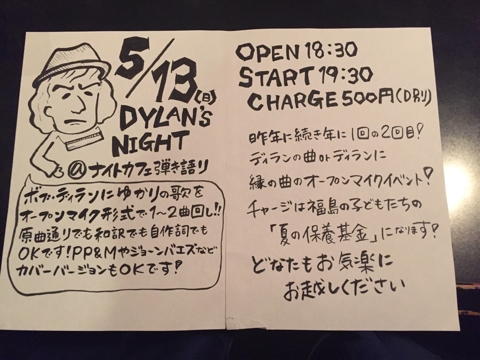 5/13(日)
DYLAN'S
NIGHT
@ナイトカフェ弾き語り
ボブ・ディランにゆかりの歌を
オープンマイク形式で1〜2曲回し!!
原曲通りでも和訳でも自作詞でも
OKです!PP&Mやジョーン・バエズなど
カバーバージョンもOKです!
OPEN 18:30
START 19:30
CHARGE 500円(D別)
昨年に続き年に1回の2回目!
ディランの曲orディランに
縁の曲のオープンマイクイベント!
チャージは福島の子どもたちの
「夏の保養基金」になります!
どなたもお気楽に
お越しください